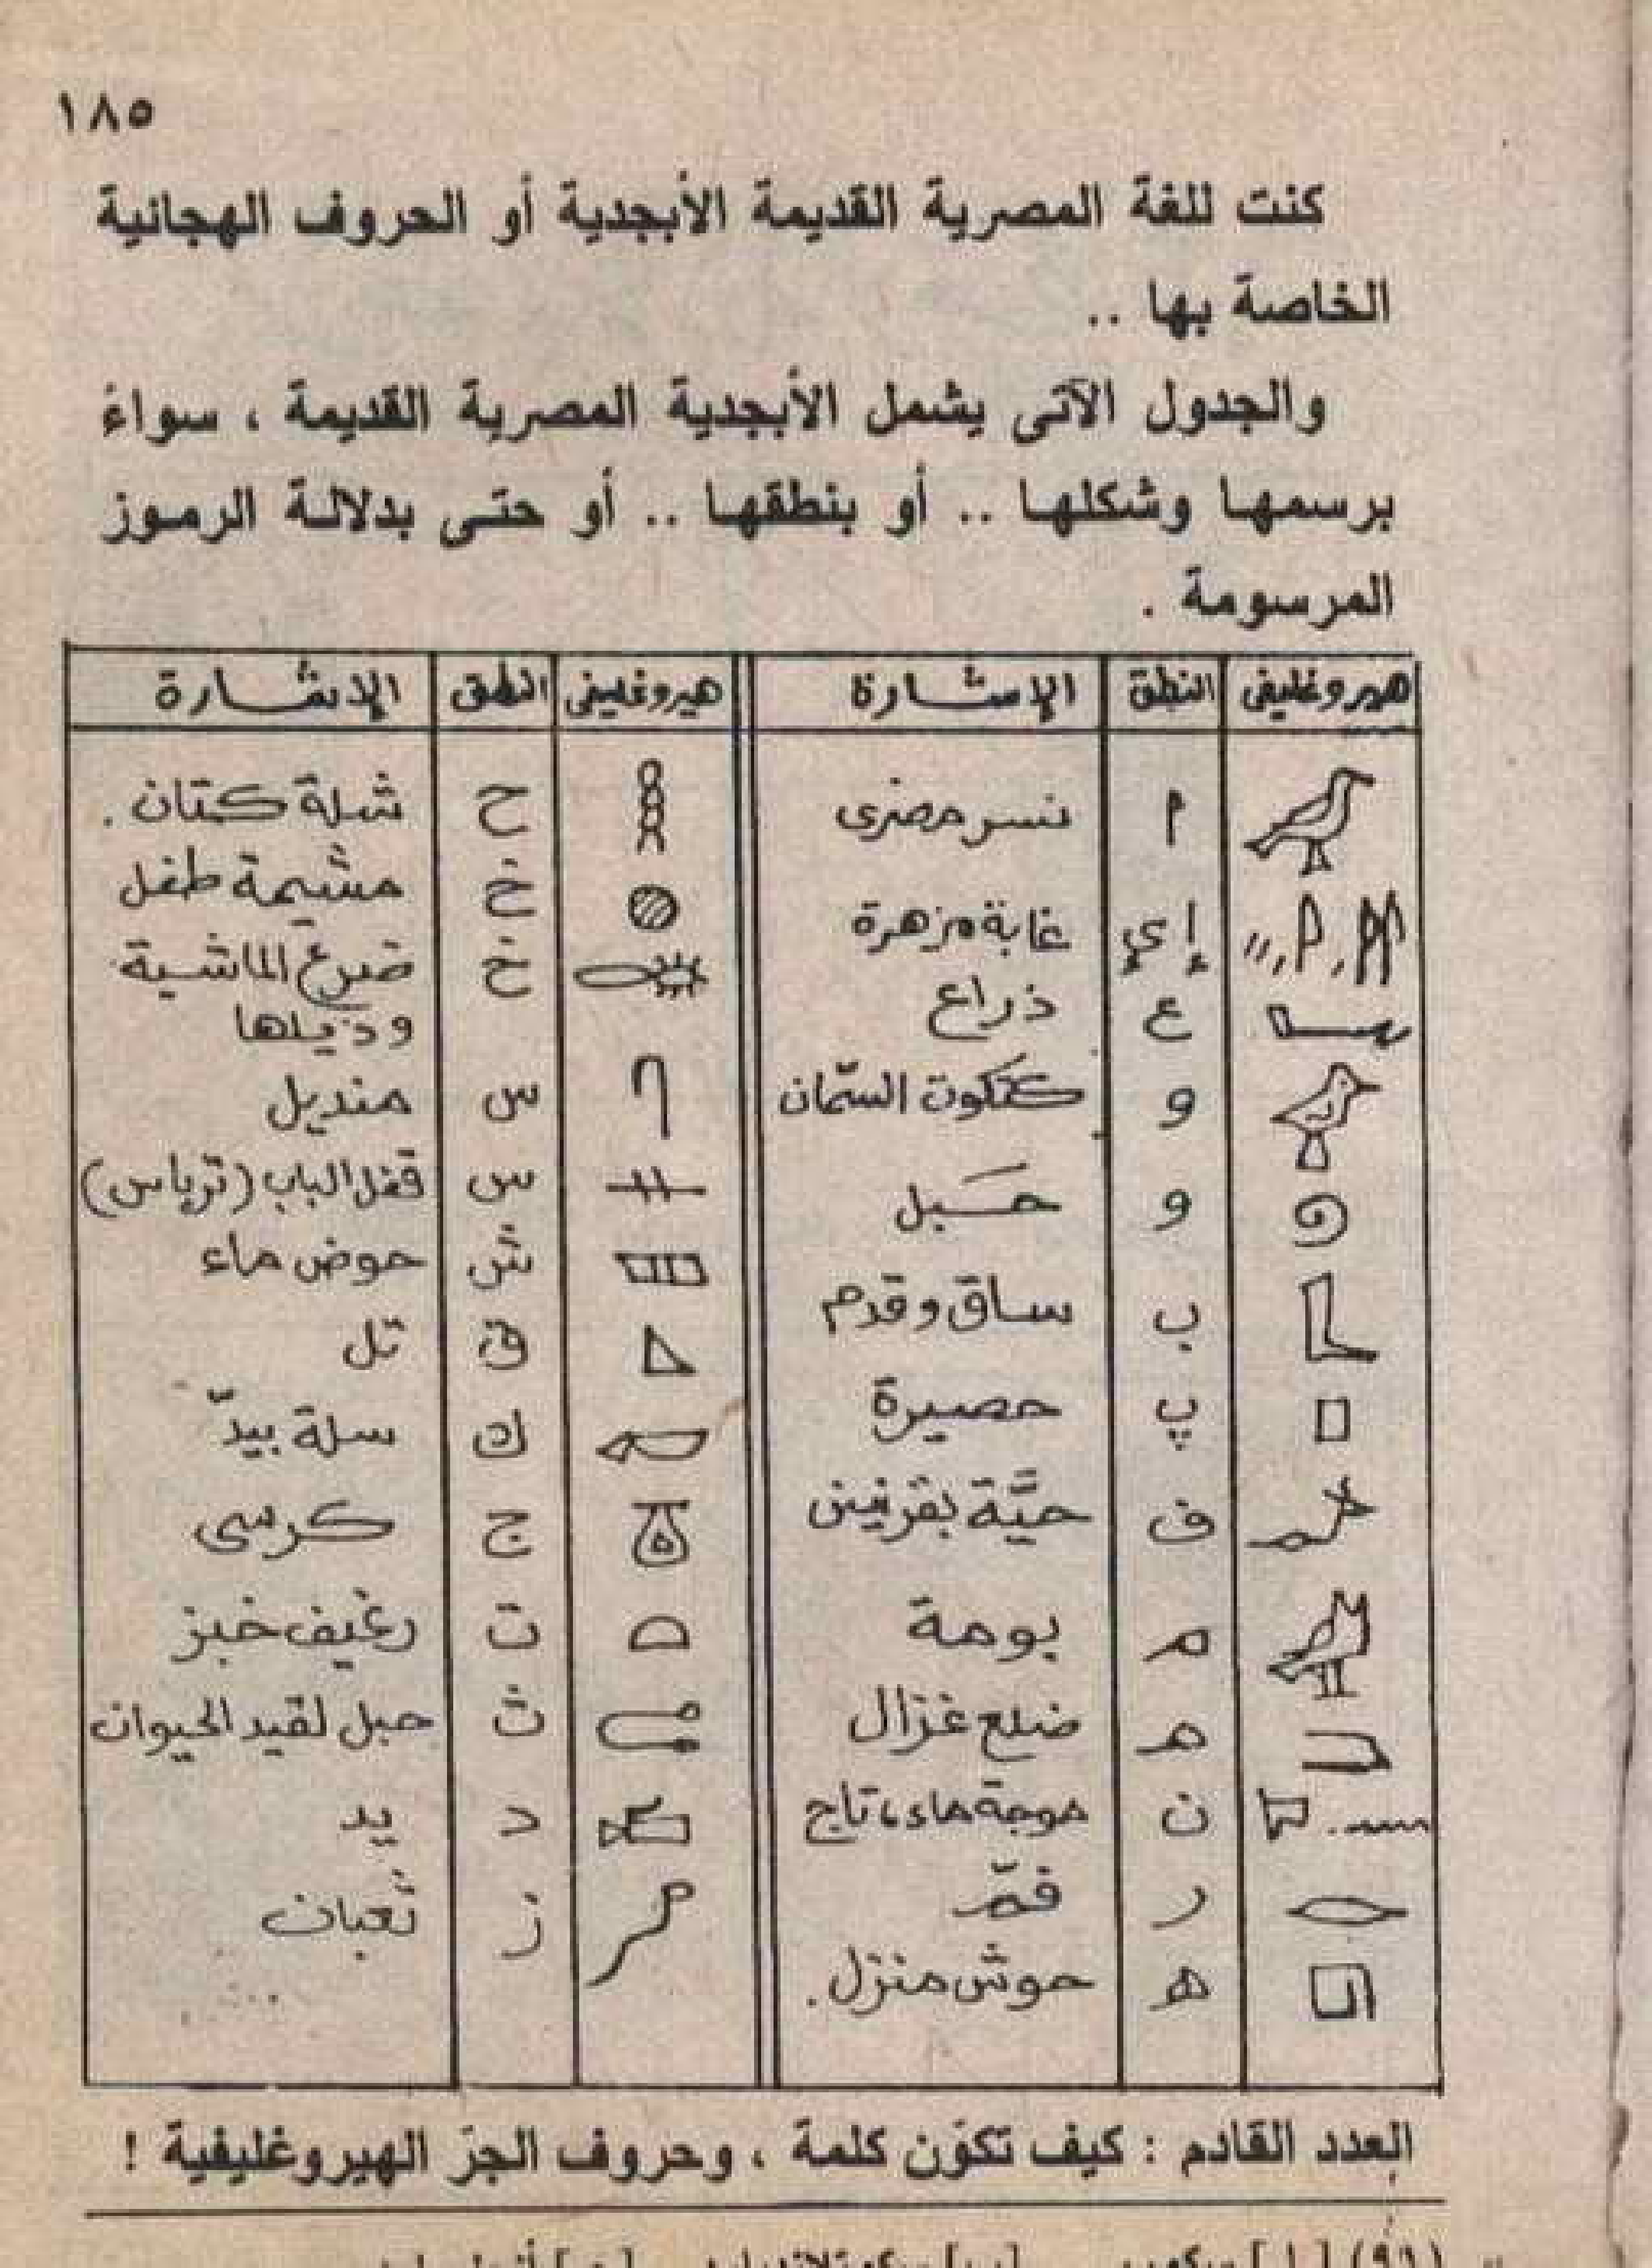 ١٨٥
كنت للغة المصرية القديمة الأبجدية أو الحروف الهجائية
الخاصة بها ..
والجدول الآتى يشمل الأبجدية المصرية القديمة ، سواءً
برسمها وشكلها .. أو بنطقها .. أو حتى بدلالة الرموز
المرسومة .
هيروغليفى النطق الإشارة هيروغليفى النطق الإشارة
نسر مصرى ح شلة كتان .
إ ي غابة مزهرة خ مشيمة طفل
ع ذراع خ ضرع الماشية
وذيلها
و كتكوت السمّان س منديل
و حَبل س قفل الباب (ترباس)
ب ساق وقدم ش حوض ماء
پ حصيرة ق تل
ف حيَّة بقرنين ك سلة بيدّ
م بومة ج كرسى
ه ضلع غزال ت رغيف خبز
ن موجة ماء، تاج ث حبل لقيد الحيوان
ر فمّ د يد
ه حوش منزل . ز ثعبان
العدد القادم : كيف تكوّن كلمة ، وحروف الجرّ الهيروغليفية !